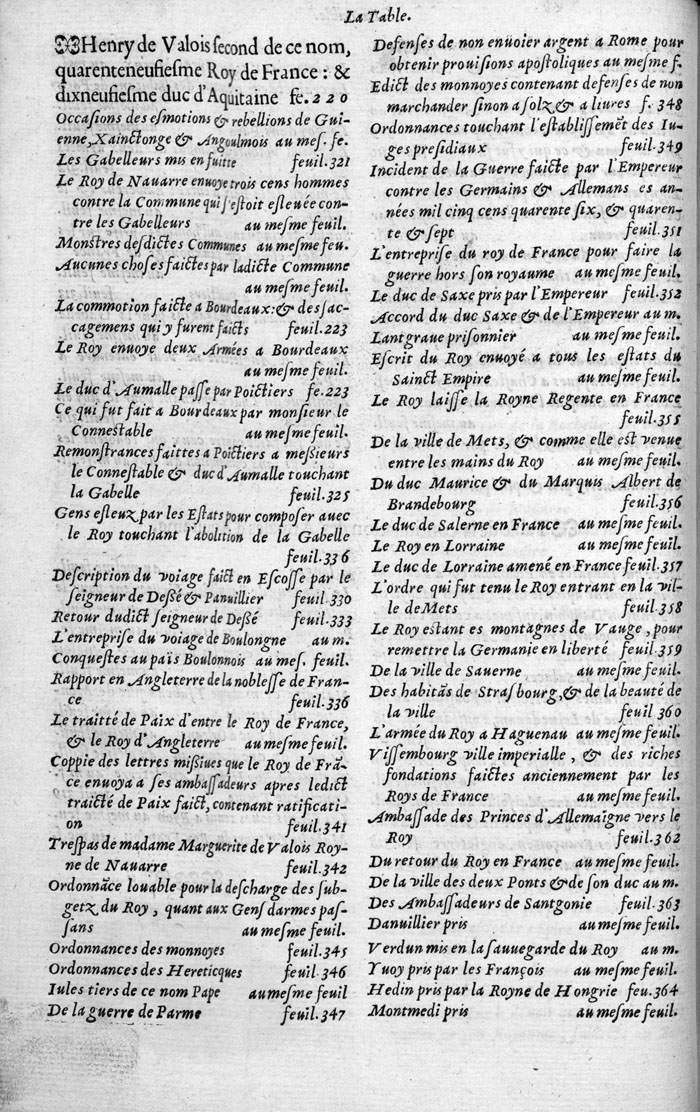 La Table.
Henry de Valois second de ce nom,
quarenteneufiesme Roy de France : &
dixneufiesme duc d'Aquitaine fe.220
Occasions des esmotions & rebellions de Gui-
enne, Xainctonge & Angoulmois au mes. fe.
Les Gabelleurs mis en fuitte feuil.321
Le Roy de Nauarre enuoye trois cens hommes
contre la Commune qui s'estoit esleuée con-
tre les Gabelleurs au mesme feuil.
Monstres desdictes Communes au mesme feu.
Aucunes choses faictes par ladicte Commune
au mesme feuil.
La commotion faicte a Bourdeaux: & des sac-
cagemens qui y furent faicts feuil.223
Le Roy enuoye deux Armées a Bourdeaux
au mesme feuil.
Le duc d'Aumalle passe par Poictiers fe.223
Ce qui fut fait a Bourdeaux par monsieur le
Connestable au mesme feuil.
Remonstrances faittes a Poictiers a messieurs
le Connestable & duc d'Aumalle touchant
la Gabelle feuil.325
Gens esleuz par les Estats pour composer auec
le Roy touchant l'abolition de la Gabelle
feuil.336
Description du voiage faict en Escosse par le
seigneur de Dessé & Panuillier feuil 330
Retour dudict seigneur de Dessé feuil.333
L'entreprise du voiage de Boulongne au m.
Conquestes au païs Boulonnois au mes. feuil.
Rapport en Angleterre de la noblesse de Fran-
ce feuil.336
Le traitté de Paix d'entre le Roy de France,
& le Roy d'Angleterre au mesme feuil.
Coppie des lettres missiues que le Roy de Frã-
ce enuoya a ses ambassadeurs apres ledict
traicté de Paix faict, contenant ratificati-
on feuil.341
Trespas de madame Marguerite de Valois Roy-
ne de Nauarre feuil.342
Ordonnãce louable pour la descharge des sub-
getz du Roy, quant aux Gens darmes pas-
sans au mesme feuil.
Ordonnances des monnoyes feuil.345
Ordonnances des Hereticques feuil 346
Iules tiers de ce nom Pape au mesme feuil
De la guerre de Parme feuil.347
Defenses de non enuoier argent a Rome pour
obtenir prouisions apostoliques au mesme f.
Edict des monnoyes contenant defenses de non
marchander sinon a solz & a liures f. 348
Ordonnances touchant l'establissemẽt des Iu-
ges presidiaux feuil.349
Incident de la Guerre faicte par l'Empereur
contre les Germains & Allemans es an-
nées mil cinq cens quarente six, & quaren-
te & sept feuil.351
L'entreprise du roy de France pour faire la
guerre hors son royaume au mesme feuil.
Le duc de Saxe pris par l'Empereur feuil.352
Accord du duc Saxe & de l'Empereur au m.
Lantgraue prisonnier au mesme feuil.
Escrit du Roy enuoyé a tous les estats du
Sainct Empire au mesme feuil.
Le Roy laisse la Royne Regente en France
feuil.355
De la ville de Mets, & comme elle est venue
entre les mains du Roy au mesme feuil.
Du duc Maurice & du Marquis Albert de
Brandebourg feuil.356
Le duc de Salerne en France au mesme feuil.
Le Roy en Lorraine au mesme feuil.
Le duc de Lorraine amené en France feuil.357
L'ordre qui fut tenu le Roy entrant en la vil-
le de Mets feuil.358
Le Roy estant es montagnes de Vauge, pour
remettre la Germanie en liberté feuil.359
De la ville de Sauerne au mesme feuil.
Des habitãs de Strasbourg, & de la beauté de
la ville feuil 360
L'armée du Roy a Haguenau au mesme feuil.
Vissembourg ville imperialle, & des riches
fondations faictes anciennement par les
Roys de France au mesme feuil.
Ambassade des Princes d'Allemaigne vers le
Roy feuil.362
Du retour du Roy en France au mesme feuil.
De la ville des deux Ponts & de son duc au m.
Des Ambassadeurs de Santgonie feuil.363
Danuillier pris au mesme feuil.
Verdun mis en la sauuegarde du Roy au m.
Yuoy pris par les François au mesme feuil.
Hedin pris par la Royne de Hongrie feu.364
Montmedi pris au mesme feuil.